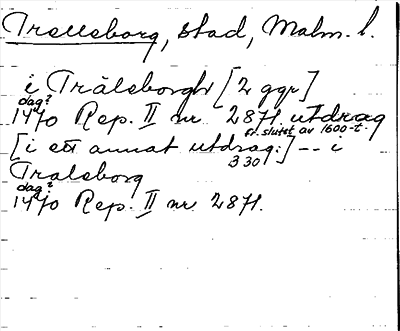 Trelleborg, stad, Malm. l.
i Trälsborgh [2 ggr]
dag?
1470 Rep. II nr 2871 utdrag
fr. slutet av 1600-t.
[i ett annat utdrag:] -- i
330
Tralsborg
dag?
1470 Rep. II nr 2871.